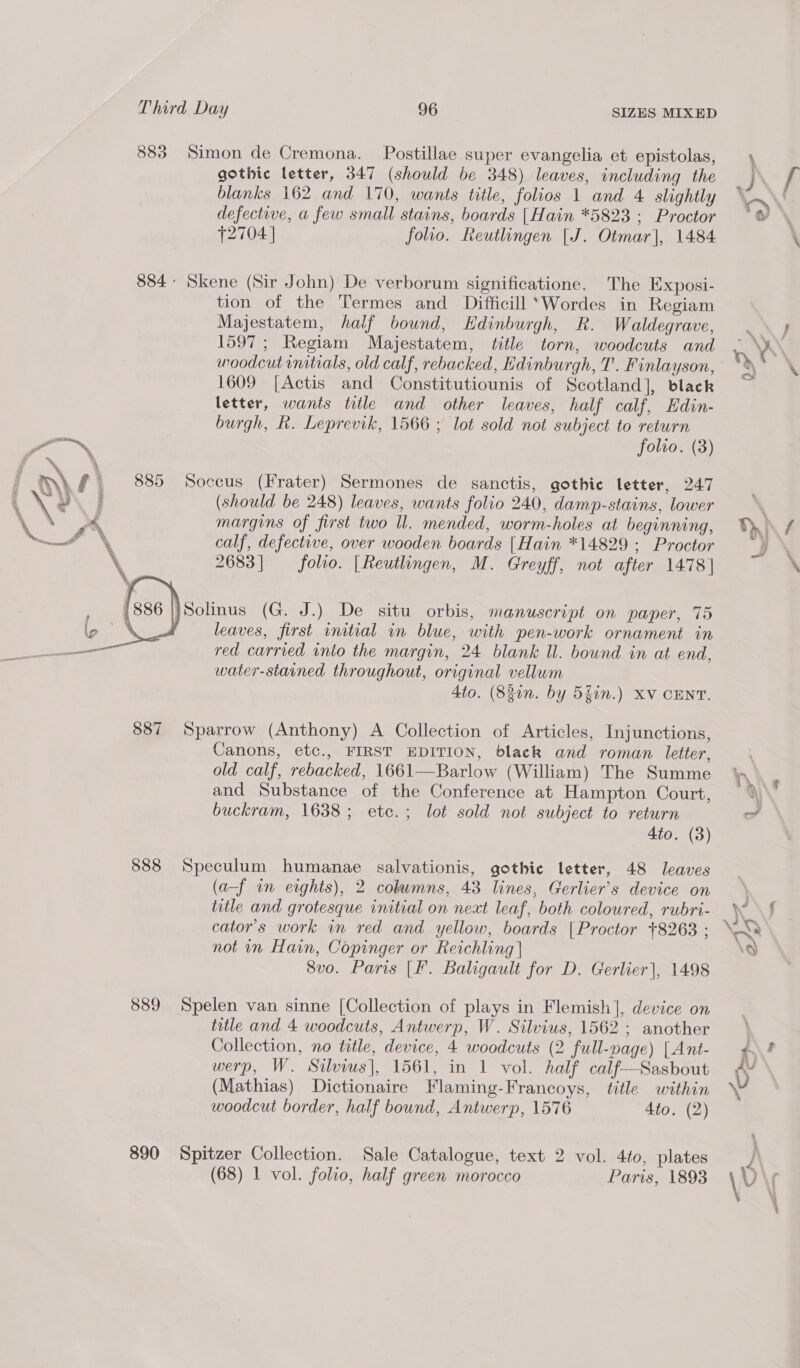 Third Day 96 SIZES MIXED
883 Simon de Cremona. Postillae super evangelia et epistolas,
gothic letter, 347 (should be 348) leaves, including the
blanks 162 and 170, wants title, folios 1 and 4 slightly
defective, a few small stains, boards [Hain *5823 ; Proctor
†2704] folio. Reutlingen [J. Otmar], 1484
884 · Skene (Sir John) De verborum significatione. The Exposi-
tion of the Termes and Difficill Wordes in Regiam
Majestatem, half bound, Edinburgh, R. Waldegrave,
1597 ; Regiam Majestatem, title torn, woodcuts and
woodcut initials, old calf, rebacked, Edinburgh, T. Finlayson,
1609 [Actis and Constitutiounis of Scotland], black
letter, wants title and other leaves, half calf, Edin-
burgh, R. Leprevik, 1566 ; lot sold not subject to return
folio. (3)
885 Soccus (Frater) Sermones de sanctis, gothic letter, 247
(should be 248) leaves, wants folio 240, damp-stains, lower
margins of first two ll. mended, worm-holes at beginning,
calf, defective, over wooden boards [Hain *14829 ; Proctor
2683] folio. [Reutlingen, M. Greyff, not after 1478]
886 Solinus (G. J.) De situ orbis, manuscript on paper, 75
leaves, first initial in blue, with pen-work ornament in
red carried into the margin, 24 blank ll. bound in at end,
water-stained throughout, original vellum
4to. (8¾in. by 5¾in.) XV CENT.
887 Sparrow (Anthony) A Collection of Articles, Injunctions,
Canons, etc., FIRST EDITION, black and roman letter,
old calf, rebacked, 1661—Barlow (William) The Summe
and Substance of the Conference at Hampton Court,
buckram, 1638 ; etc. ; lot sold not subject to return
4to. (3)
888 Speculum humanae salvationis, gothic letter, 48 leaves
(a–f in eights), 2 columns, 43 lines, Gerlier's device on
title and grotesque initial on next leaf, both coloured, rubri-
cator's work in red and yellow, boards [Proctor †8263 ;
not in Hain, Copinger or Reichling]
8vo. Paris [F. Baligault for D. Gerlier], 1498
889 Spelen van sinne [Collection of plays in Flemish], device on
title and 4 woodcuts, Antwerp, W. Silvius, 1562 ; another
Collection, no title, device, 4 woodcuts (2 full-page) [Ant-
werp, W. Silvius], 1561, in 1 vol. half calf—Sasbout
(Mathias) Dictionaire Flaming-Francoys, title within
woodcut border, half bound, Antwerp, 1576 4to. (2)
890 Spitzer Collection. Sale Catalogue, text 2 vol. 4to, plates
(68) 1 vol. folio, half green morocco Paris, 1893